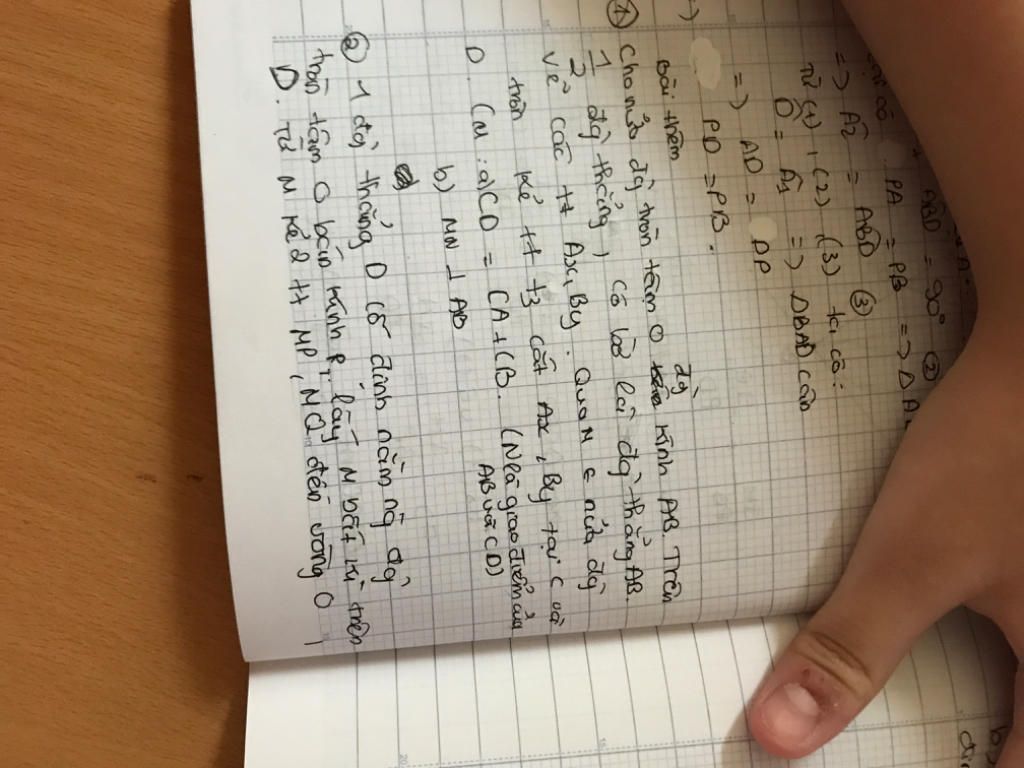 ABD = 90° ②
có PA = PB => Δ
=> Â2 = ABD ③
Từ (1), (2), (3) ta có:
D̂ = Â1 => ΔBAD cân
=> AD = AP
PD = PB.
Bài thêm
① Cho nửa đg tròn tâm O đg kính AB. Trên
1/2 đg thẳng, có bờ là đg thẳng AB.
Vẽ các tt Ax, By. Qua M ∈ nửa đg
tròn kẻ tt t3 cắt Ax, By tại C và
D. CM: a) CD = CA + CB. (N là giao điểm của
AB và CD)
b) MN ⊥ AB
② 1 đg thẳng D cố định nằm ng đg
tròn tâm O bán kính R. lấy M bất kì trên
D. từ M kẻ 2 tt MP, MQ đến